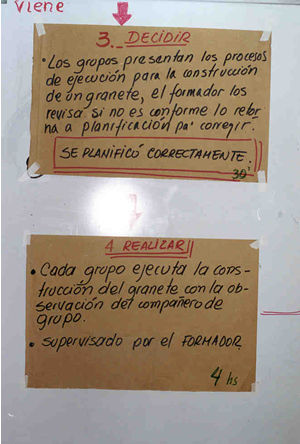 Viene
3._ DECIDIR
• Los grupos presentan los procesos
de ejecución para la construcción
de un granete, el formador los
revisa si no es conforme lo retor
na a planificación pa' corregir.
SE PLANIFICÓ CORRECTAMENTE.
30'
4 REALIZAR
• Cada grupo ejecuta la cons-
trucción del granete con la ob-
servación del compañero de
grupo.
• supervisado por el FORMADOR
4 hs